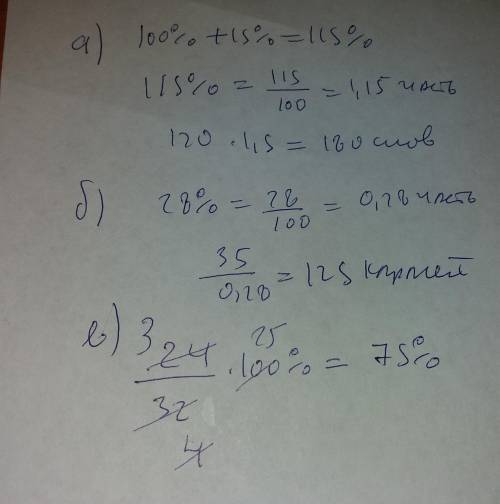 а) 100% + 15% = 115%
115% = 115/100 = 1,15 часть
120 · 1,5 = 180 слов
б) 28% = 28/100 = 0,28 часть
35/0,28 = 125 карпей
в) 3 24/32 4 · 100% 25 = 75%